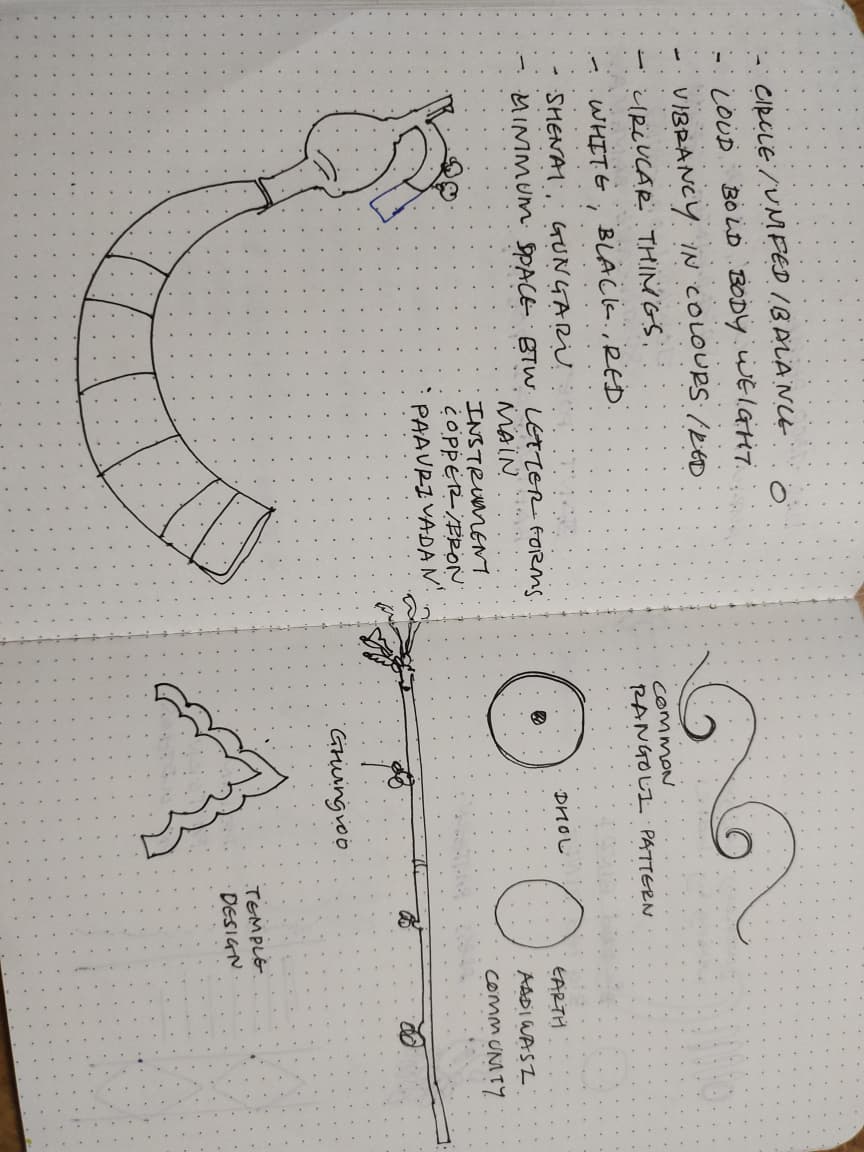 - CIRCLE / UNIFIED / BALANCE O
- LOUD BOLD BODY WEIGHT
- VIBRANCY IN COLOURS / RED
- CIRCULAR THINGS.
- WHITE, BLACK, RED
- SHENAI, GUNGARU
- MINIMUM SPACE BTW LETTER FORMS
MAIN
INSTRUMENT
COPPER / IRON
'PAAVRI VADAN'
COMMON
RANGOLI PATTERN
DHOL
EARTH
AADIWASI
COMMUNITY
Ghungroo
TEMPLE
DESIGN